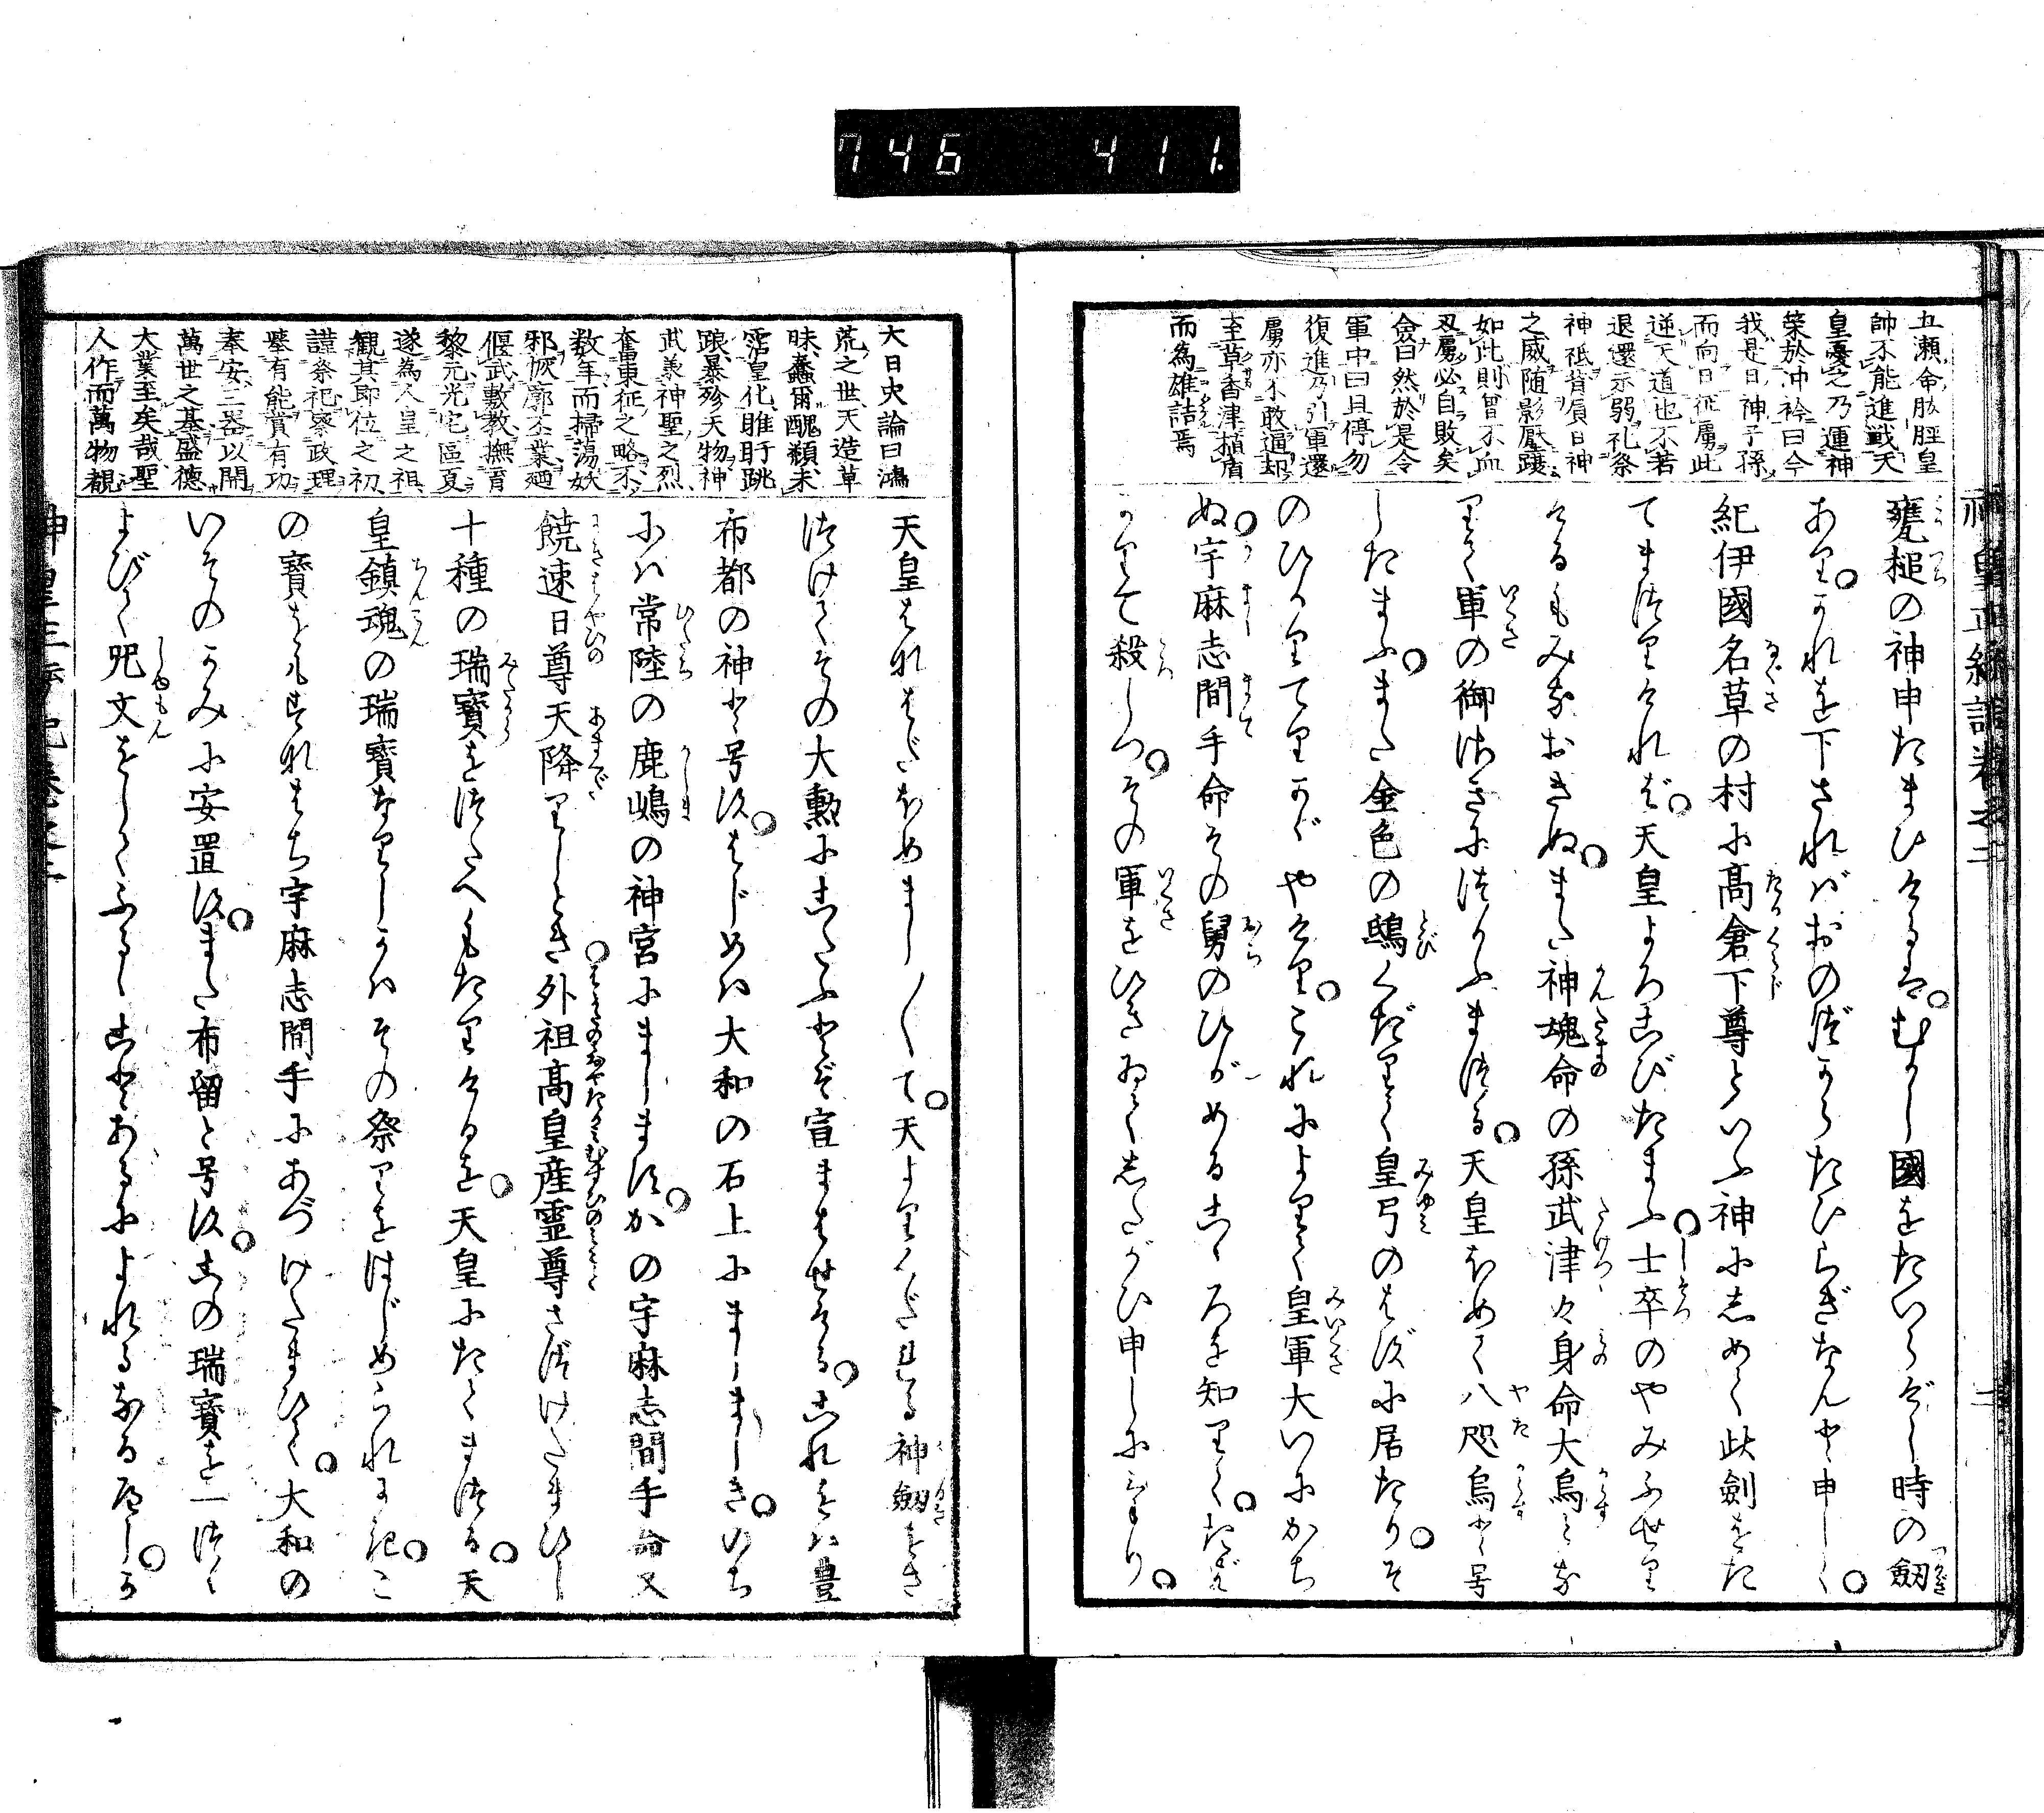 746 411.
五瀬命肱脛皇
帥不能進戰天
皇憂之乃運神
策於冲衿曰今
我是日神子孫
而向日征虜此
逆天道也不若
退還示弱礼祭
神祇背負日神
之威随影壓躡
如此則曽不血
刃虜必自敗矣
僉曰然於是令
軍中曰且停勿
復進乃引軍還
虜亦不敢逼却
至草香津植盾
而為雄詰焉
甕槌の神申たまひけるは○むかし國をたいらげし時の劔
あり○これを下さればおのづからたひらぎなんと申して○
紀伊國名草の村に高倉下尊といふ神にしめして此劍をた
てまつりければ○天皇よろこびたまふ○士卒のやみふせり
けるもみなおきぬ○また神魂命の孫武津々身命大烏とな
りて軍の御さきにつかふまつる○天皇ほめて八咫烏と号
したまふ○また金色の鵄くだりて皇弓のはずに居たり○そ
のひかりてりかゞやけり○これによりて皇軍大いにかち
ぬ○宇麻志間手命その舅のひがめるこゝろを知りて○たば
かりて殺しつ○その軍をひきゐてしたがひ申しにけり○
大日史論曰鴻
荒之世天造草
昧蠢爾醜類未
霑皇化睢盱跳
踉暴殄天物神
武義神聖之烈
奮東征之略不
数年而掃蕩妖
邪恢廓丕業廼
偃武敷教撫育
黎元光宅區夏
遂為人皇之祖
観其即位之初
謹祭祀察政理
擧有能賞有功
奉安三器以開
萬世之基盛徳
大業至矣哉聖
人作而萬物覩
天皇はなはだほめまし〳〵て○天よりくだれる神劔をさ
づけてその大勲にこたふとぞ宣まはせける○これをハ豊
布都の神と号す○はじめハ大和の石上にましましき○のち
にハ常陸の鹿嶋の神宮にまします○かの宇麻志間手命又
饒速日尊天降りしとき○外祖高皇産霊尊さづけたまひし
十種の瑞寳をつたへもたりけるを○天皇にたてまつる○天
皇鎮魂の瑞寳なりしかハその祭りをはじめられにき○こ
の寳をもすなはち宇麻志間手にあづけたまひて○大和の
いそのかみに安置す○また布留と号す○この瑞寳を一づゝ
よびて呪文をしてふることあるによれるなるべし○